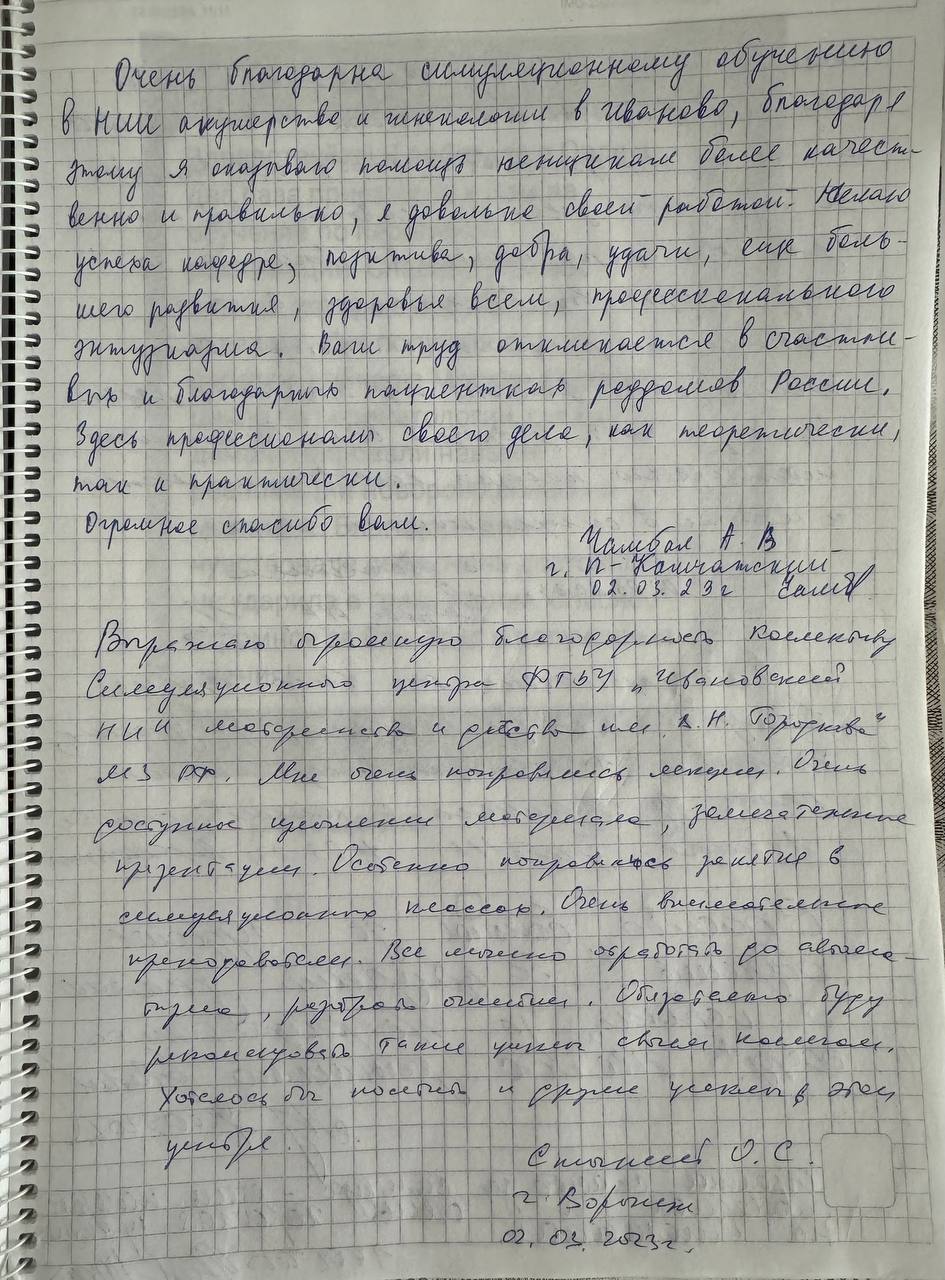 Очень благодарна симуляционному обучению
в НИИ акушерства и гинекологии в Иваново, благодаря
этому я оказываю помощь женщинам более качест-
венно и правильно, я довольна своей работой. Желаю
успеха кафедре, позитива, добра, удачи, еще боль-
шего развития, здоровья всем, профессионального
энтузиазма. Ваш труд откликается в счастли-
вых и благодарных пациентках роддомов России.
Здесь профессионалы своего дела, как теоретически,
так и практически.
Огромное спасибо вам.
Чамбал А. В
г. П-Камчатский
02.03.23г
Выражаю огромную благодарность коллективу
Симуляционного центра ФГБУ „Ивановский
НИИ материнства и детства им. В.Н. Городкова"
МЗ РФ. Мне очень понравились лекции. Очень
доступное изложение материала, замечательные
презентации. Особенно понравились занятия в
симуляционных классах. Очень внимательные
преподаватели. Все можно отработать до автома-
тизма, разобрать ошибки. Обязательно буду
рекомендовать такие циклы своим коллегам.
Хотелось бы посетить и другие циклы в этом
центре.
О.С.
г. Воронеж
02.03.2023г.